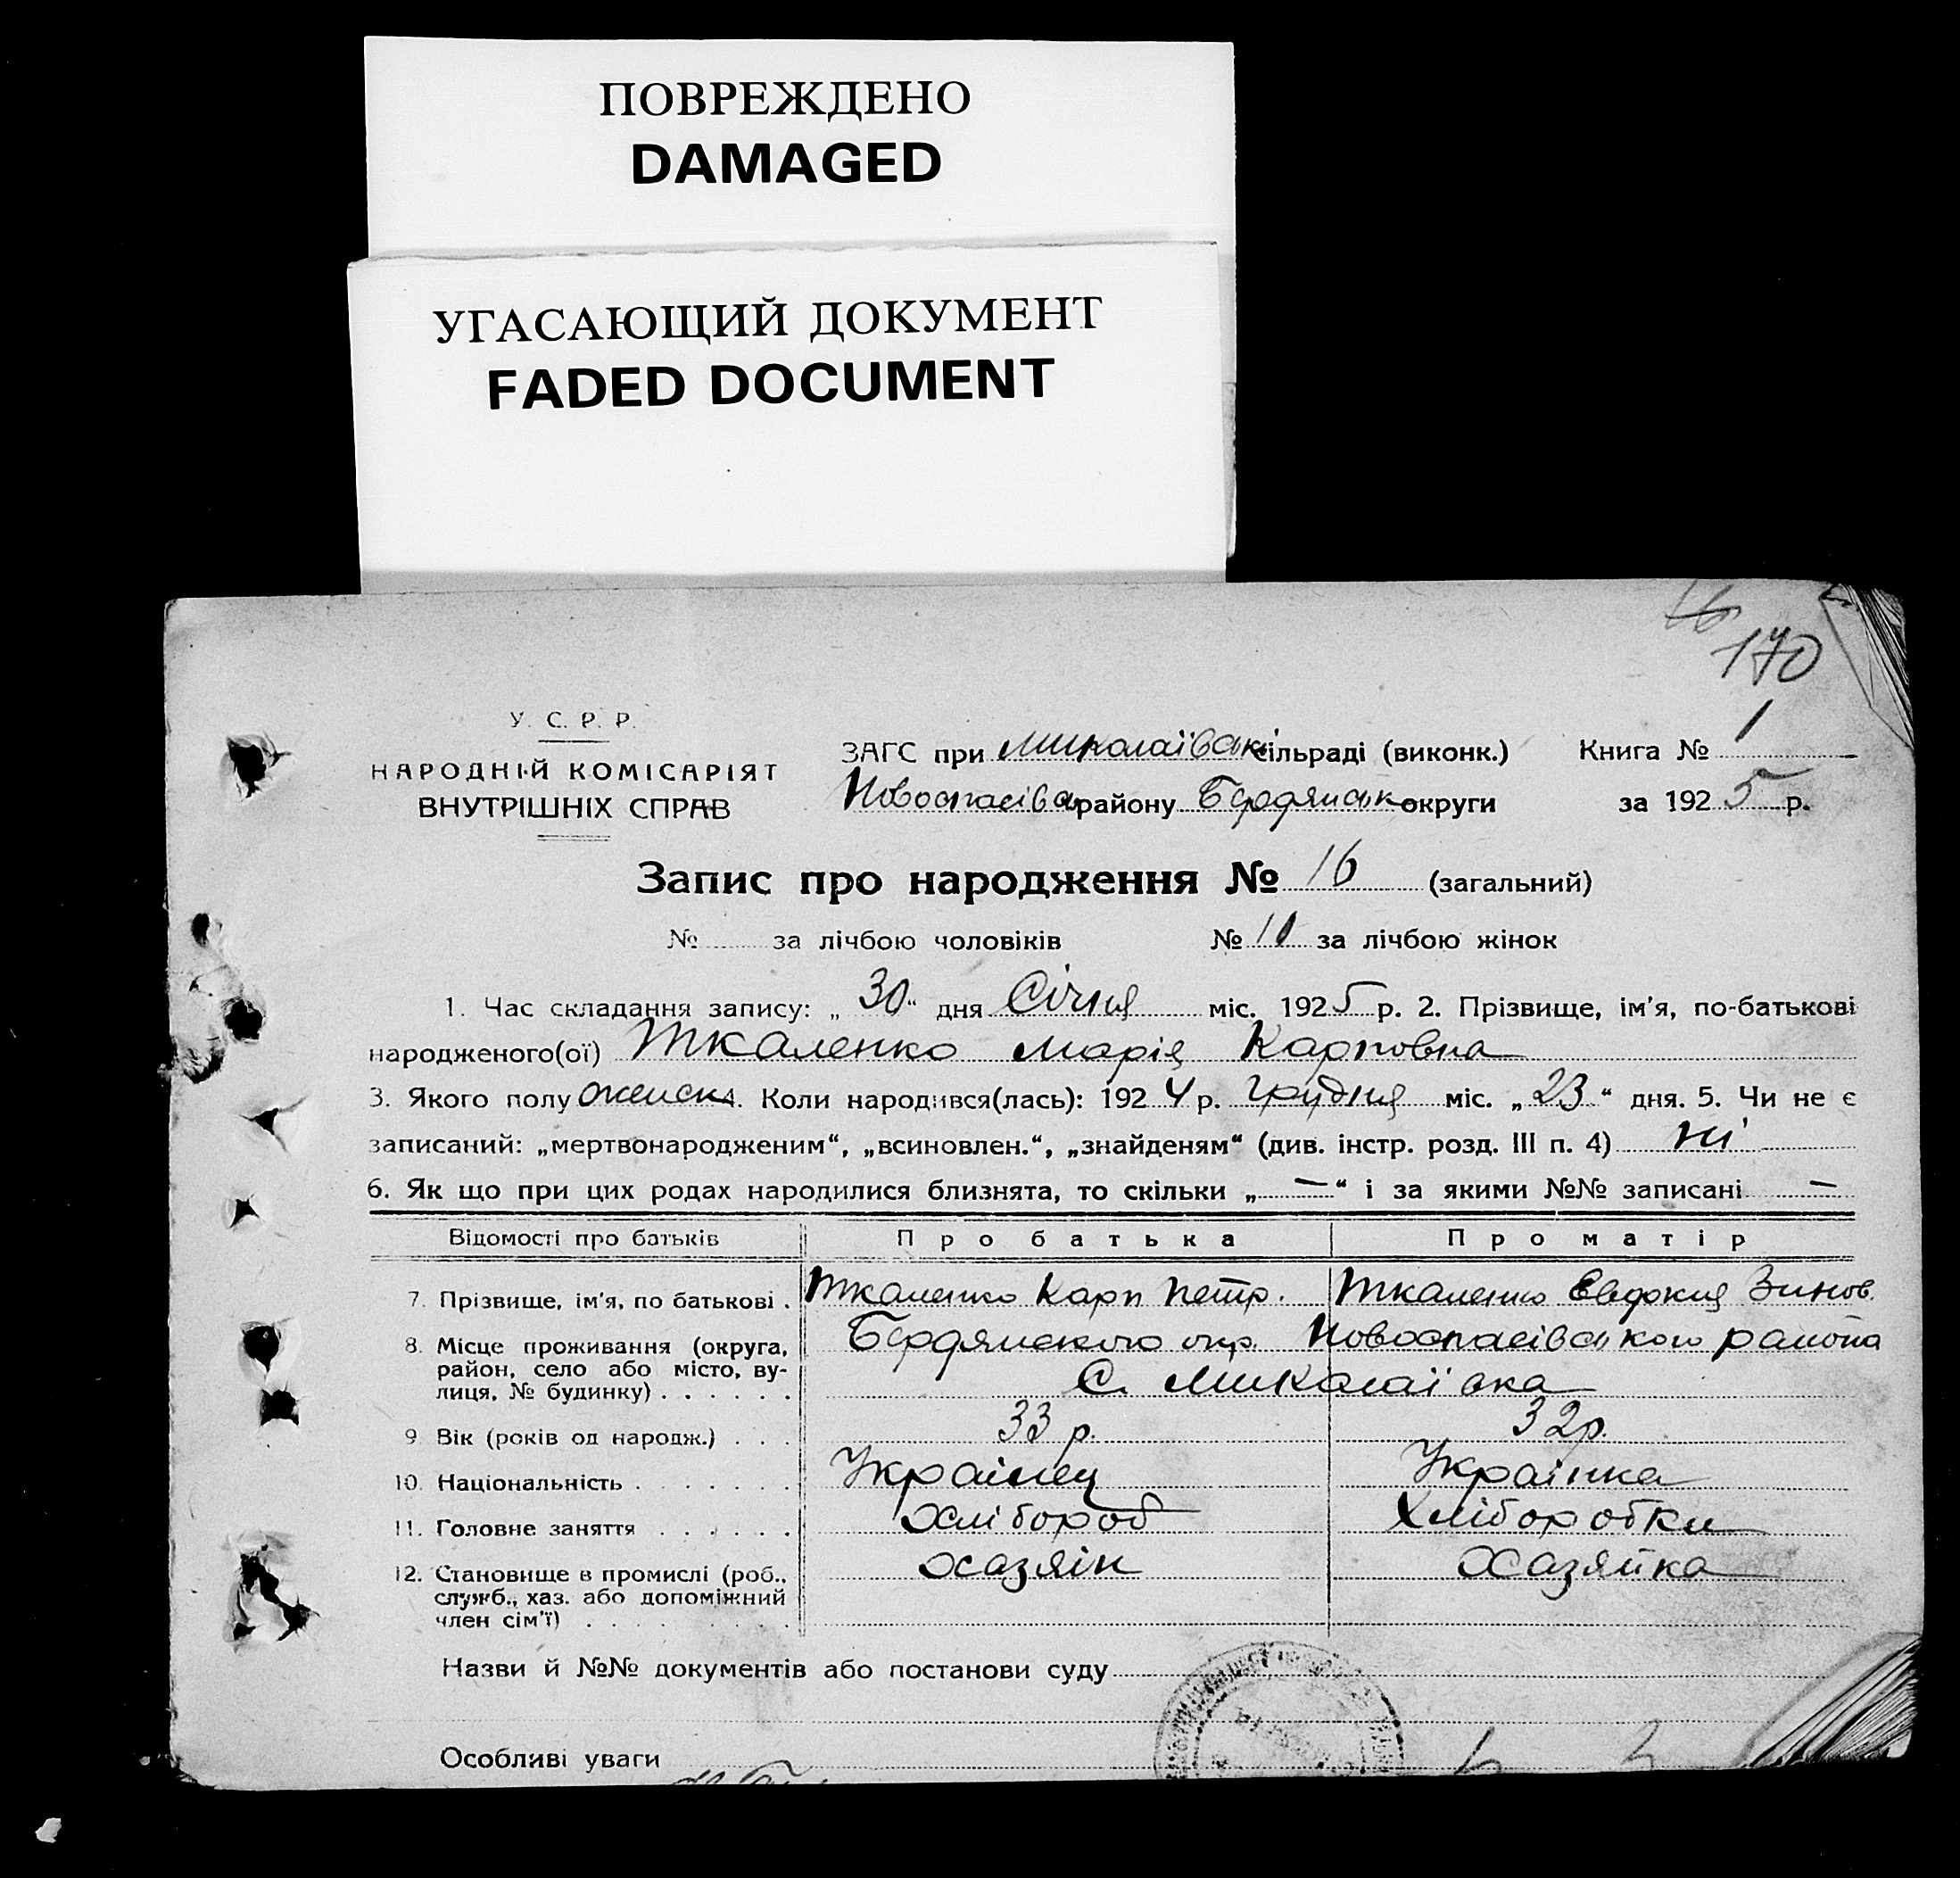 ПОВРЕЖДЕНО
DAMAGED
УГАСАЮЩИЙ ДОКУМЕНТ
FADED DOCUMENT
16
170
У. С. Р. Р.
НАРОДНІЙ КОМІСАРІЯТ
ВНУТРІШНІХ СПРАВ
ЗАГС при Миколаївськ. сільраді (виконк.) Книга № 1
Новоспасівськ району Бердянськ округи за 1925 р.
Запис про народження № 16 (загальний)
№ за лічбою чоловіків № 10 за лічбою жінок
1. Час складання запису: „30“ дня Січня міс. 1925 р. 2. Прізвище, ім'я, по-батькові
народженого(ої) Ткаленко Марія Карповна
3. Якого полу женск 4. Коли народився(лась): 1924 р. Грудня міс. „23“ дня. 5. Чи не є
записаний: „мертвонародженим“, „всиновлен.“, „знайденям“ (див. інстр. розд. III п. 4) ні
6. Як що при цих родах народилися близнята, то скільки „—“ і за якими №№ записані —
Відомості про батьків Про батька Про матір
7. Прізвище, ім'я, по батькові . Ткаленко Карп Петр. Ткаленко Евдокия Зинов.
8. Місце проживання (округа, район, село або місто, вулиця, № будинку) . . . . . . Бердянського окр. Новоспасівського района
С. Миколаївка
9. Вік (років од народж.) . . . 33 р. 32 р.
10. Національність . . . . . . . Українец Українка
11. Головне заняття . . . . . . Хлібороб Хліборобки
12. Становище в промислі (роб., служб., хаз. або допоміжний член сім'ї) . . . . . . . . Хазяін Хазяйка
Назви й №№ документів або постанови суду
Особливі уваги